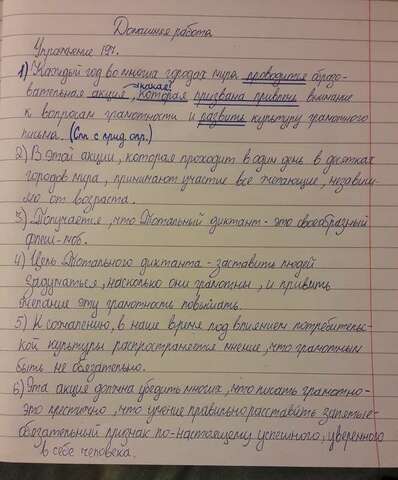 Домашняя работа
Упражнение 191.
1) Каждый год во многих городах мира проводится образо-
какая?
вательная акция, которая призвана привлечь внимание
к вопросам грамотности и развить культуру грамотного
письма. (Сп. с прид. опр.)
2) В этой акции, которая проходит в один день в десятках
городов мира, принимают участие все желающие, независи-
мо от возраста.
3) Получается, что Тотальный диктант - это своеобразный
флеш-моб.
4) Цель Тотального диктанта - заставить людей
задуматься, насколько они грамотны, и привить
желание эту грамотность повышать.
5) К сожалению, в наше время под влиянием потребительс-
кой культуры распространяется мнение, что грамотным
быть не обязательно.
6) Эта акция должна убедить многих, что писать грамотно-
это престижно, что умение правильно расставить запятые-
обязательный признак по-настоящему успешного, уверенного
в себе человека.